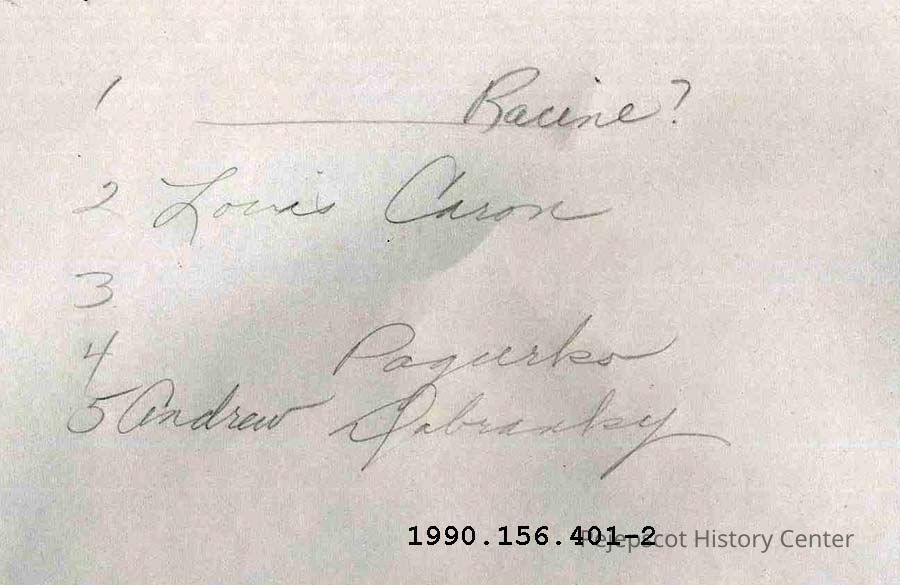 1 ________ Racine?
2 Louis Caron
3
4 Pagurko
5 Andrew
1990.156.401-2
Pejepscot History Center